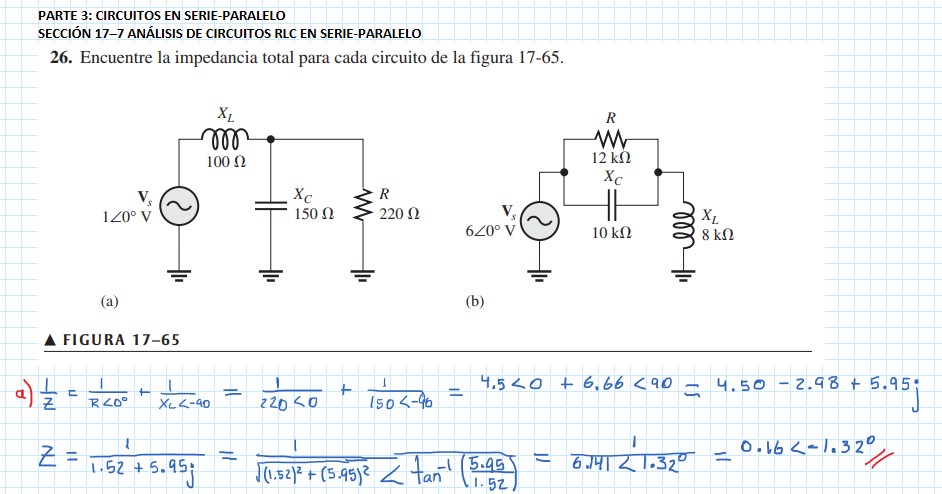 PARTE 3: CIRCUITOS EN SERIE-PARALELO
SECCIÓN 17–7 ANÁLISIS DE CIRCUITOS RLC EN SERIE-PARALELO
26. Encuentre la impedancia total para cada circuito de la figura 17-65.
X_L
100 Ω
V_s
1∠0° V
X_C
150 Ω
R
220 Ω
(a)
R
12 kΩ
X_C
10 kΩ
V_s
6∠0° V
X_L
8 kΩ
(b)
▲ FIGURA 17–65
a) 1/Z = 1/R∠0° + 1/X_C∠-90 = 1/220∠0 + 1/150∠-90 = 4.5∠0 + 6.66∠90 = 4.50 - 2.98 + 5.95j
Z = 1/1.52 + 5.95j = 1/√(1.52)² + (5.95)² ∠ tan⁻¹(5.95/1.52) = 1/6.141∠1.32° = 0.16∠-1.32°